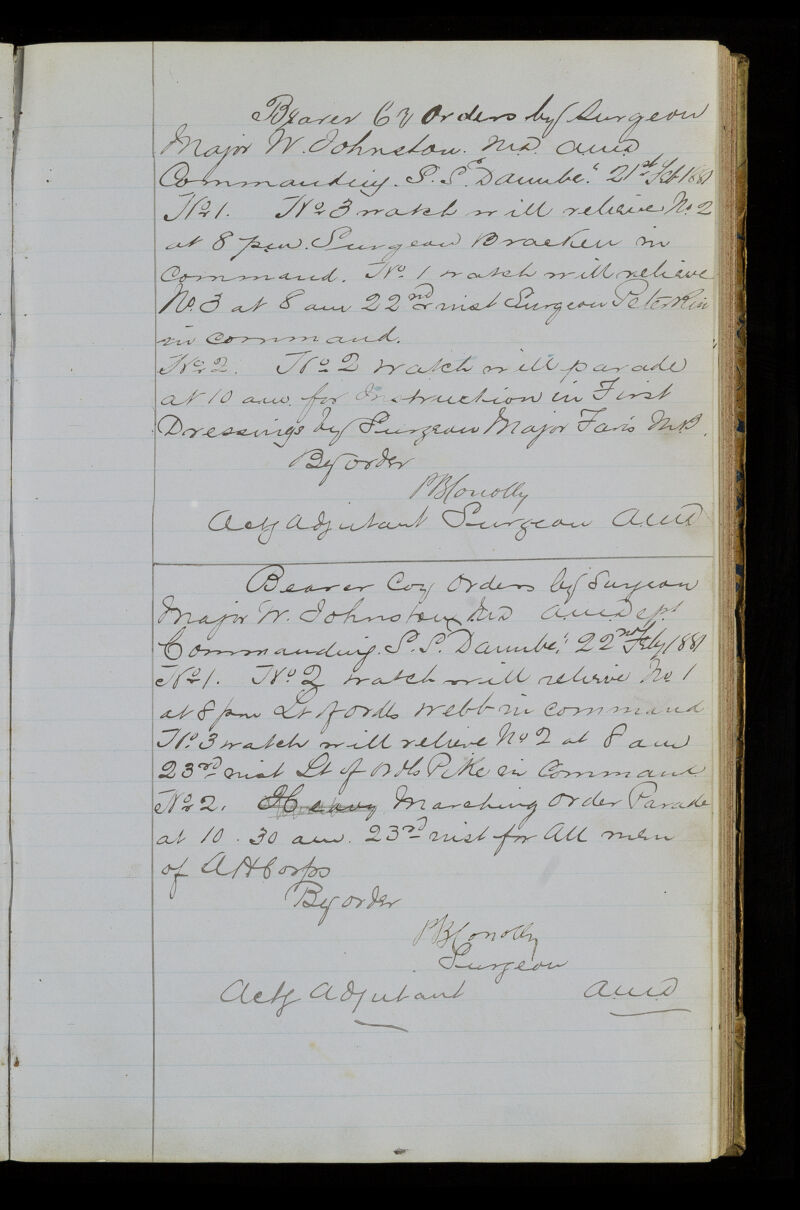 Bearer Cy Orders by Surgeon
Major W. Johnston. M.D. A.M.D
Commanding. S.S. "Danube." 21st Feb 1881
No 1. No 3 watch will relieve No 2
at 8 pm. Surgeon Bracken in
command. No. 1 watch will relieve
No. 3 at 8 am 22nd inst Surgeon Peterkin
in command.
No. 2. No 2 watch will parade
at 10 am. for instruction in First
Dressings by Surgeon Major Faris M.B.
By order
Conolly
Actg Adjutant Surgeon AMD
Bearer Coy Orders by Surgeon
Major W. Johnston M.D A.M.Dept
Commanding. S.S. "Danube." 22nd Feby 1881
No 1. No 2 watch will relieve No 1
at 8 pm Lt of Ords Webb in command
No. 3 watch will relieve No 2 at 8 am
23rd inst Lt of Ords Pike in command
No 2. Heavy Marching Order Parade
at 10.30 am. 23rd inst for All men
of A H Corps
By order
Conolly
Surgeon
Actg Adjutant AMD